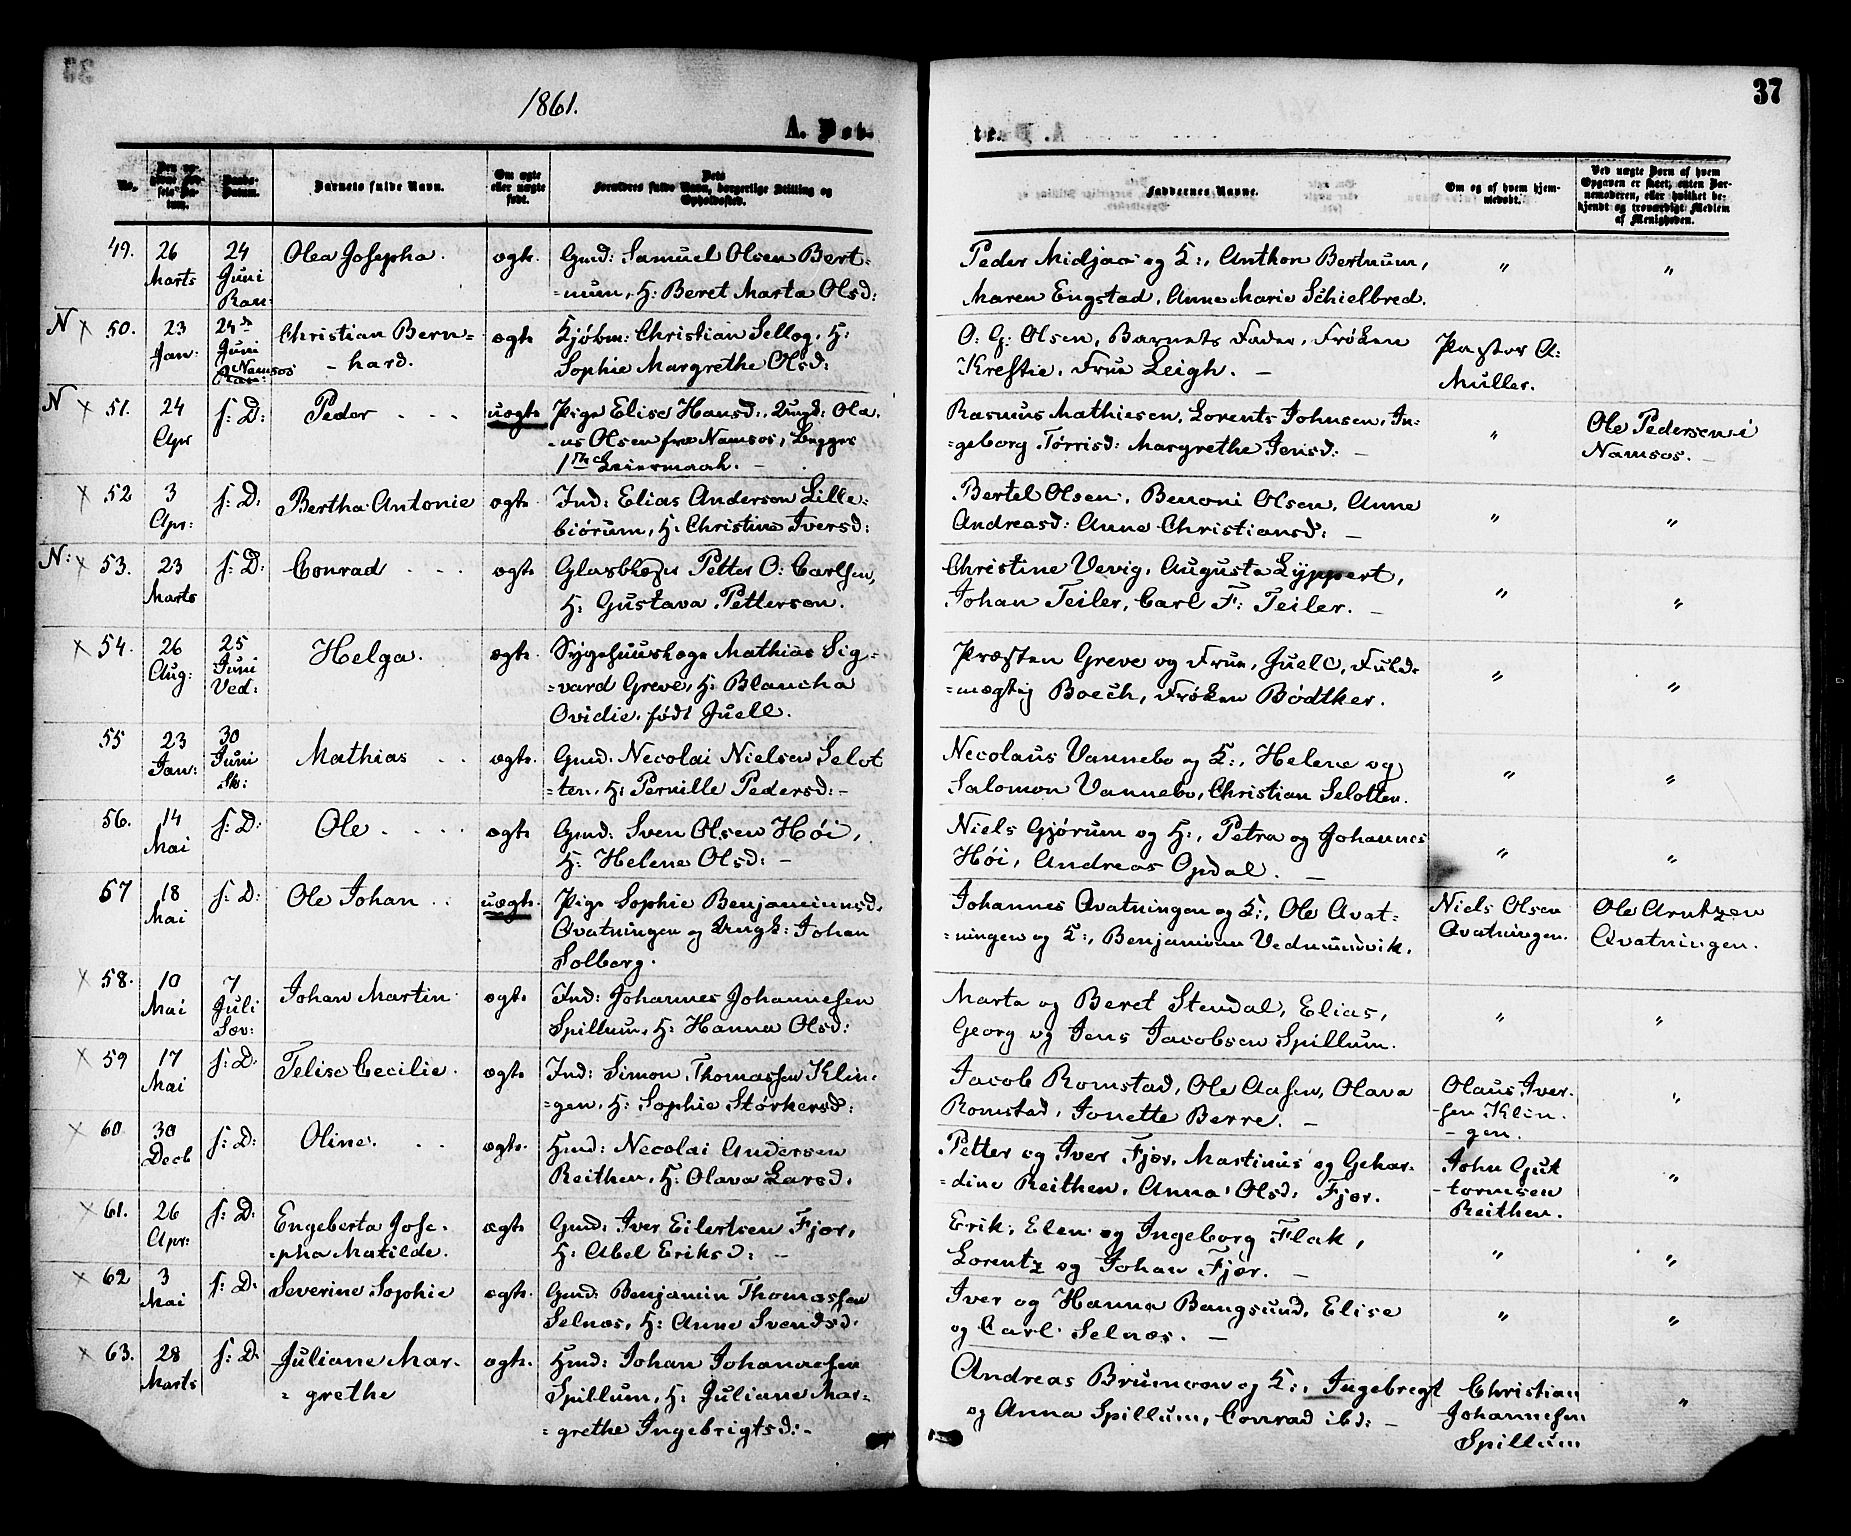 1861.
37
A. Døb-
te.
No.
Barnets fulde Navn.
Om ægte eller uægte født.
Dets Forældres fulde Navn, borgerlige Stilling og Opholdssted.
Faddernes Navne.
Om og af hvem hjemmedøbt.
Ved uægte Børn af hvem Opgaven er skeet, enten Barnemoderen, eller hvilket bekjendt og troværdigt Medlem af Menigheden.
49. 26 Marts 24 Juni Ran: Olea Josepha. ægte. Gmd: Samuel Olsen Bert=
=num, H: Beret Marta Olsd:
Peder Midjaa og K:, Anthon Bertnum, " "
Maren Engstad, Anne Marie Schielbred.
N × 50. 23 Jan: 24de Juni Namsos Christian Bern=
-hard. ægte Kjøbm: Christian Sellog, H:
Sophie Margrethe Olsd:
O: G: Olsen, Barnets Fader, Frøken Pastor A:
Kreftie, Frue Leigh. — Müller.
N × 51. 24 Apr s: D: Peder uægte Pige Elise Hansd:, Ungk: Ola=
=us Olsen fra Namsos, Begges
1ste Leiermaal. —
Rasmus Mathiesen, Lorents Johnsen, In= " Ole Pedersen i
=geborg Tørrisd: Margrethe Jensd: — Namsos. —
× 52 3 Apr: s: D: Bertha Antonie ægte Ind: Elias Andersen Lille=
biórum, H: Christine Iversd:
Bertel Olsen, Benoni Olsen, Anne " "
Andreasd: Anna Christiansd: —
N: × 53. 23 Marts s: D: Conrad ægte Petter O: Carlsen,
H: Gustava Petterson.
Christine Vevig, Augusta Lyppert, " "
Johan Teiler, Carl F: Teiler. —
× 54. 26 Aug: 25 Juni Ved: Helga. ægte. Sygehuuslæge Mathias Sig=
=vard Greve, H: Blancha
Ovidie, født Juell.
Præsten Greve og Frue, Juell, Fuld= " "
=mægtig Boech, Frøken Bødtker.
55 23 Jan: 30 Juni Mathias ægte. Gmd. Necolai Nielsen Selot
=ten, H: Pernille Pedersd: -
Necolaus Vannebo og K:, Helene og " "
Salomon Vannebo, Christian Selotten.
56. 14 Mai s: D: Ole ægte Gmd: Sven Olsen Høi,
H: Helene Olsd: —
Niels Gjørum og H:, Petra og Johannes " "
Høi, Andreas Opdal. —
57 18 Mai s: D: Ole Johan uægte. Pige Sophie Benjaminsd.
Qvatningen og Ungk: Johan
Solberg.
Johannes Qvatningen og K:, Ole Qvat= Niels Olsen Ole Arntzen
=ningen og K:, Benjamin Vednundvik. Qvatningen. Qvatningen.
× 58. 10 Mai 7 Juli Sæv: Johan Martin ægte Ind: Johannes Johannesen
Spillum, H: Hanna Olsd:
Marta og Beret Stendal, Elias, " "
Georg og Jens Jacobsen Spillum.
× 59 17 Mai s: D: Felise Cecilie. ægte Ind: Simon Thomassen Klin=
=gen, H: Sophie Størkersd:
Jacob Romstad, Ole Aasen, Olava Olaus Iver= "
Romstad, Jonette Berre. — =sen Klin
- gen.
× 60 30 Decb s: D: Oline. ægte. Hmd: Necolai Andersen
Reithen, H: Olava Larsd.
Petter og Iver Fjær, Martinus og Gehar= John Gut "
=dine Reithen, Anna Olsd. Fjær. -tormsen
Reithen.
× 61. 26 Apr: s: D: Engeberta Jose=
=pha Matilde. ægte Gmd: Iver Eilertsen Fjær,
H: Abel Eriksd: —
Erik, Elen og Ingeborg Flak, " "
Lorentz og Johan Fjær. —
× 62 3 Mai s: D: Severine Sophie ægte. Gmd: Benjamin Thomassen
Selnæs, H: Anne Svendsd.
Iver og Hanna Bangsund, Elise " "
og Carl Selnæs. —
× 63. 28 Marts s: D: Juliane Mar=
= grethe ægte. Hmd: Johan Johannesen
Spillum, H: Juliane Mar=
=grethe Ingebrigtsd: -
Andreas Brumoen og K:, Ingebregt Christian "
og Anna Spillum, Conrad ibd: — Johannesen
Spillum